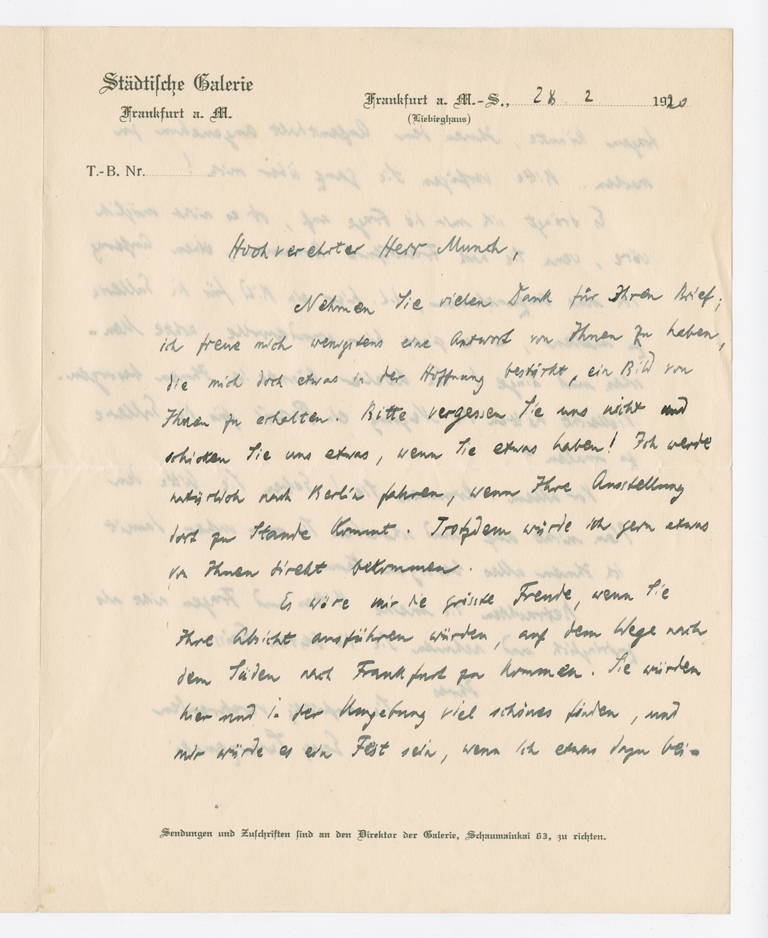 Städtische Galerie
Frankfurt a. M.
Frankfurt a. M.-S., 28 2 1920
(Liebieghaus)
T.-B. Nr.
Hochverehrter Herr Munch,
Nehmen Sie vielen Dank für Ihren Brief;
ich freue mich wenigstens eine Antwort von Ihnen zu haben,
die mich doch etwas in der Hoffnung bestärkt, ein Bild von
Ihnen zu erhalten. Bitte vergessen Sie uns nicht und
schicken Sie uns etwas, wenn Sie etwas haben! Ich werde
natürlich nach Berlin fahren, wenn Ihre Ausstellung
dort zu Stande kommt. Trotzdem würde ich gern etwas
von Ihnen direkt bekommen.
Es wäre mir die grösste Freude, wenn Sie
Ihre Absicht ausführen würden, auf dem Wege nach
dem Süden nach Frankfurt zu kommen. Sie würden
hier und in der Umgebung viel schönes finden, und
mir würde es ein Fest sein, wenn ich etwas dazu bei-
Sendungen und Zuschriften sind an den Direktor der Galerie, Schaumainkai 63, zu richten.